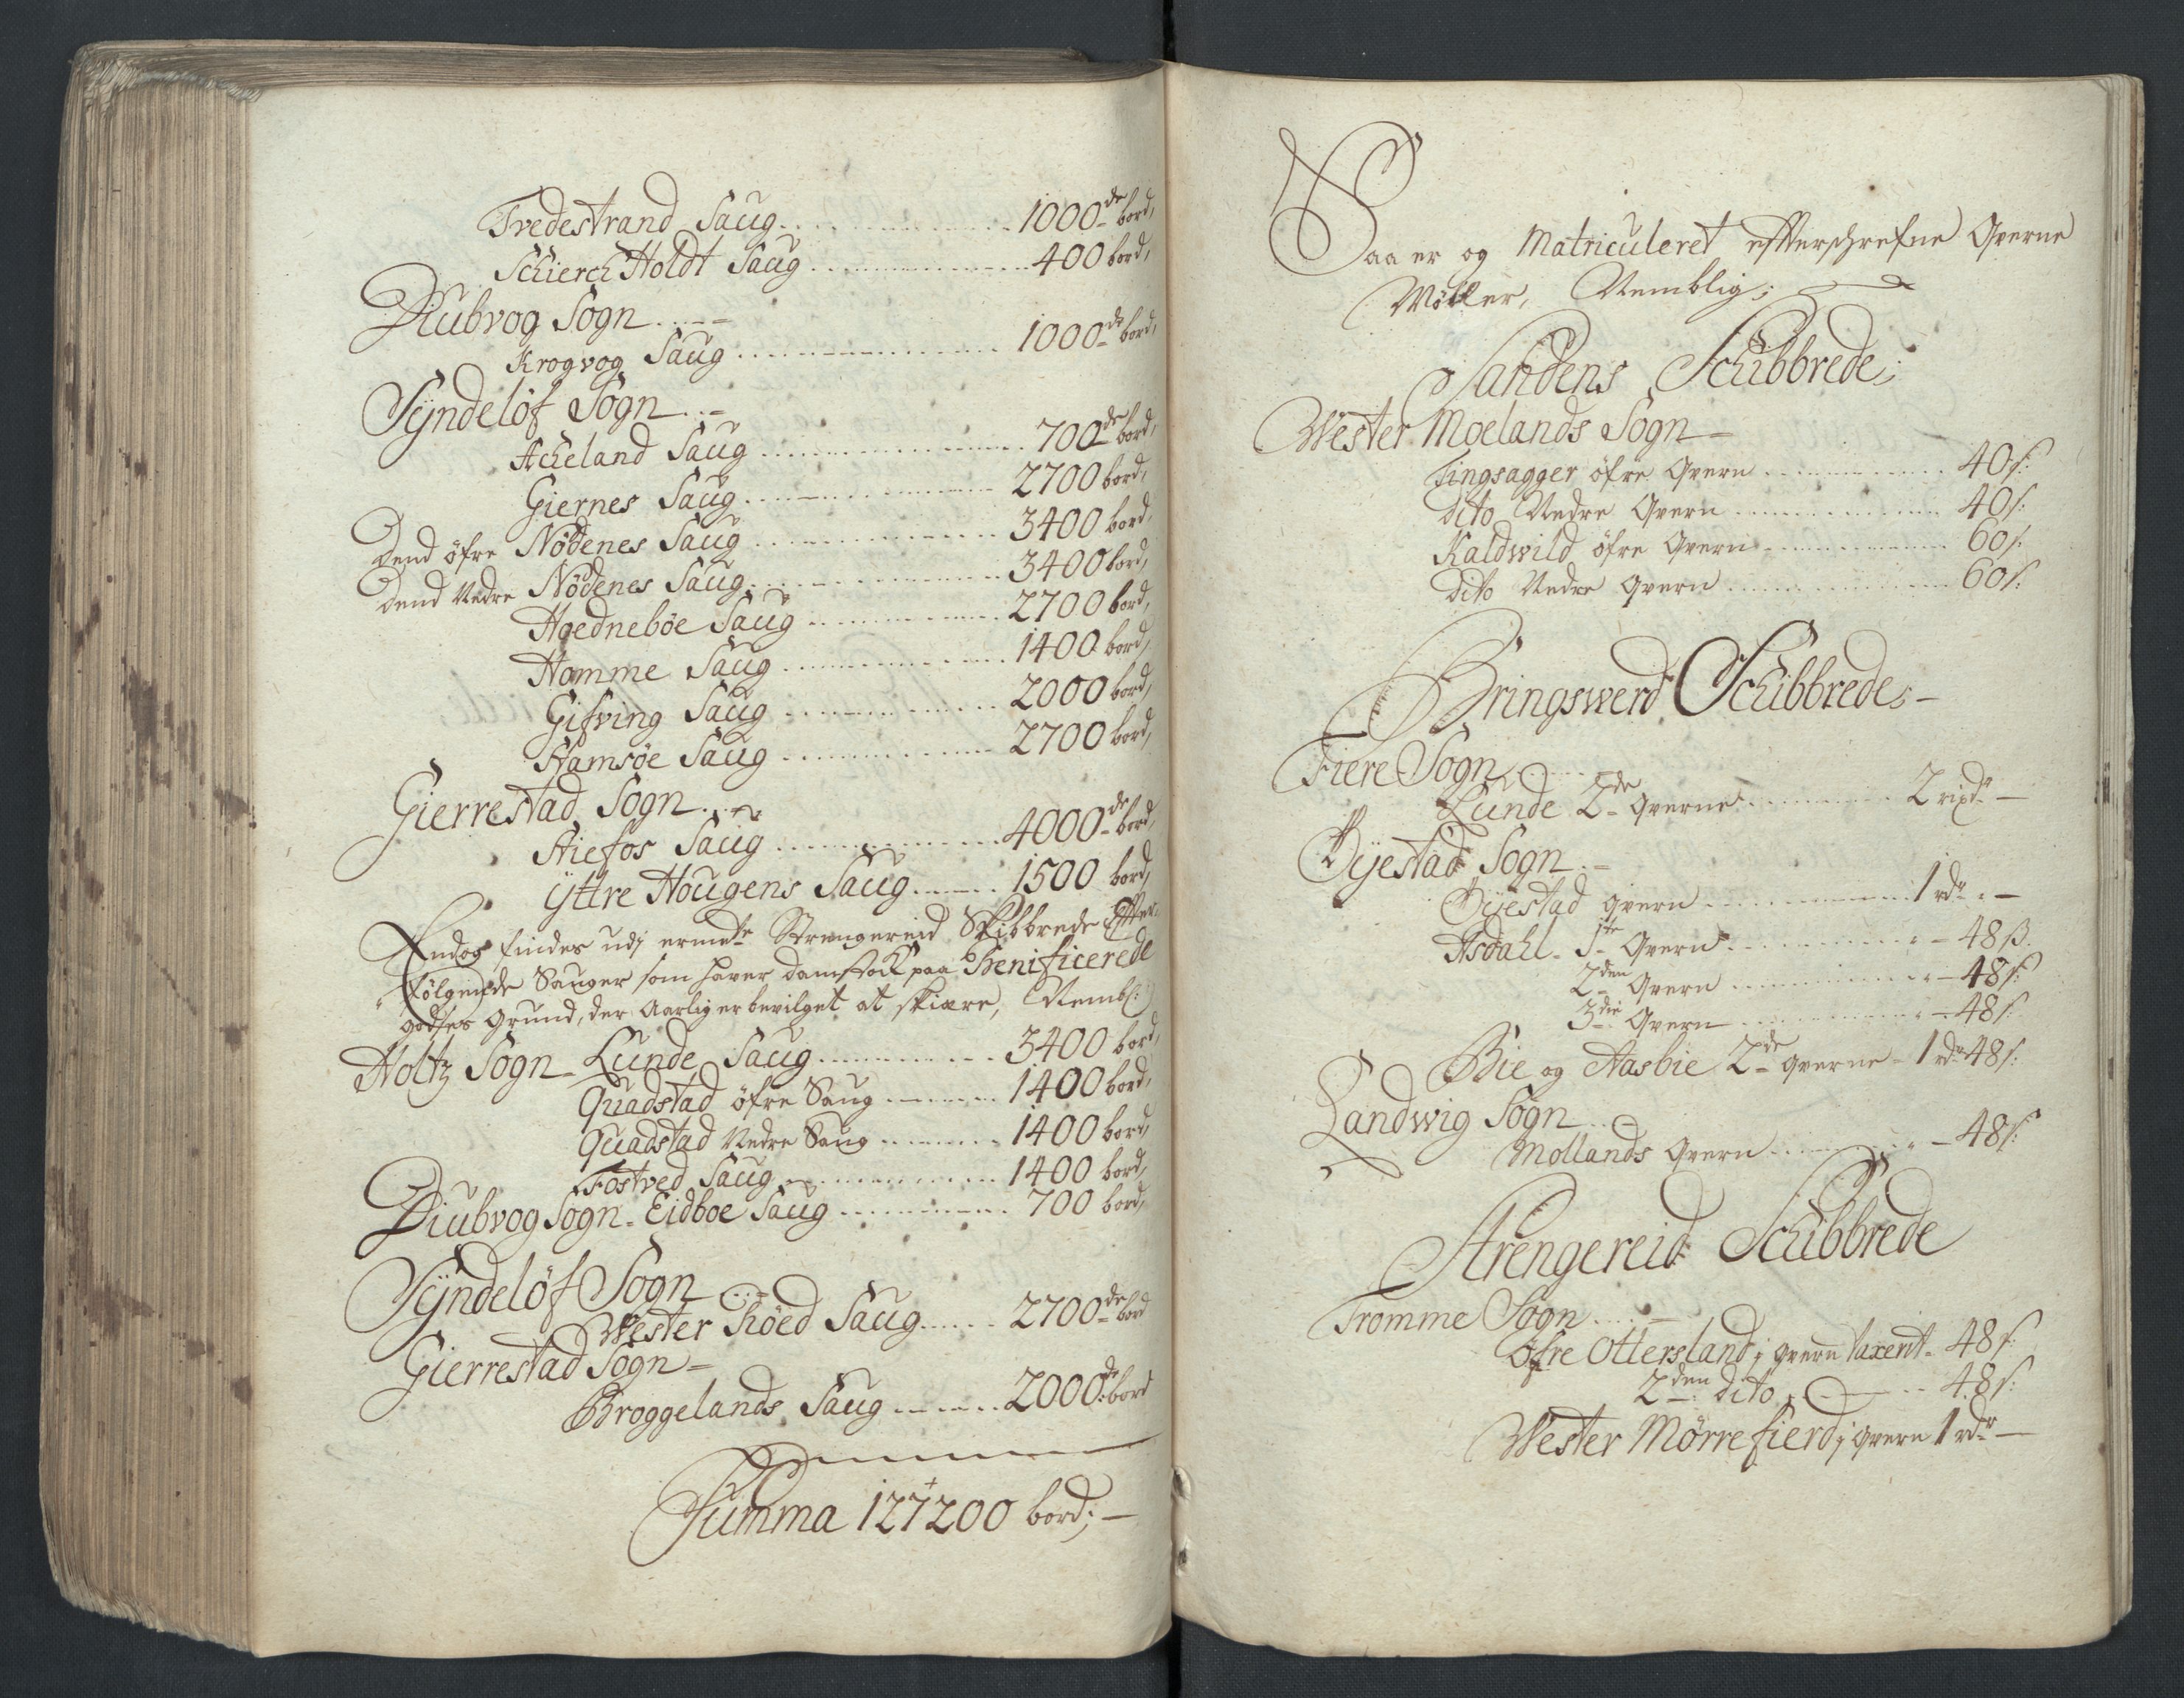 Tvedestrand Saug 1000de bord,
Schierch Holdt Saug 400 bord,
Diubvog Sogn
Krogvog Saug 1000de bord,
Syndeløf Sogn
Acheland Saug 700de bord,
Giernes Saug 2700 bord,
Dend öfre Nödenes Saug 3400 bord,
Dend Nedre Nödenes Saug 3400 bord,
Hoednebøe Saug 2700 bord,
Homme Saug 1400 bord,
Gifving Saug 2000 bord,
Hamsøe Saug 2700 bord,
Gierrestad Sogn
Aiefos Saug 4000de bord,
Yttre Hougens Saug 1500 bord,
Endog findes udj ermelte Strengereid Skibbrede Effter-
følgende Sauger som hafver damstock paa Benificerede
godses Grund, der Aarlig er bevilget at skiære, Nembl:
Holtz Sogn - Lunde Saug 3400 bord,
Quadstad öfre Saug 1400 bord,
Quadstad Nedre Saug 1400 bord,
Fostved Saug 1400 bord,
Diubvog Sogn - Eidboe Saug 700 bord,
Syndeløf Sogn
Wester Røed Saug 2700de bord
Gierrestad Sogn
Broggelands Saug 2000de bord
Summa 127200 bord; -
Saa er og Matriculeret effterschrefne Qverne
Møller, Nemblig;
Sandens Schibbrede;
Wester Moelands Sogn
Tingsagger öfre Qvern 40 s:
Dito Nedre Qvern 40 s:
Kaldwild öfre Qvern 60 s:
Dito Nedre Qvern 60 s:
Bringswerd Schibbrede; -
Fiere Sogn
Lunde 2de Qverne 2 rixdr -
Øyestad Sogn
Øyestad qvern 1 rdr -
Asdahl - 1te Qvern - 48 ß.
2den Qvern - 48 s:
3die Qvern - 48 s:
Bie og Aasbie 2de qverne - 1 rdr 48 s:
Landwig Sogn
Mollands Qvern - 48 s:
Strengereid Schibbrede
Tromme Sogn
Øfre Ottersland j qvern taxert - 48 s:
2den dito 48 s:
Wester Mørrefierd j qvern 1 rdr -